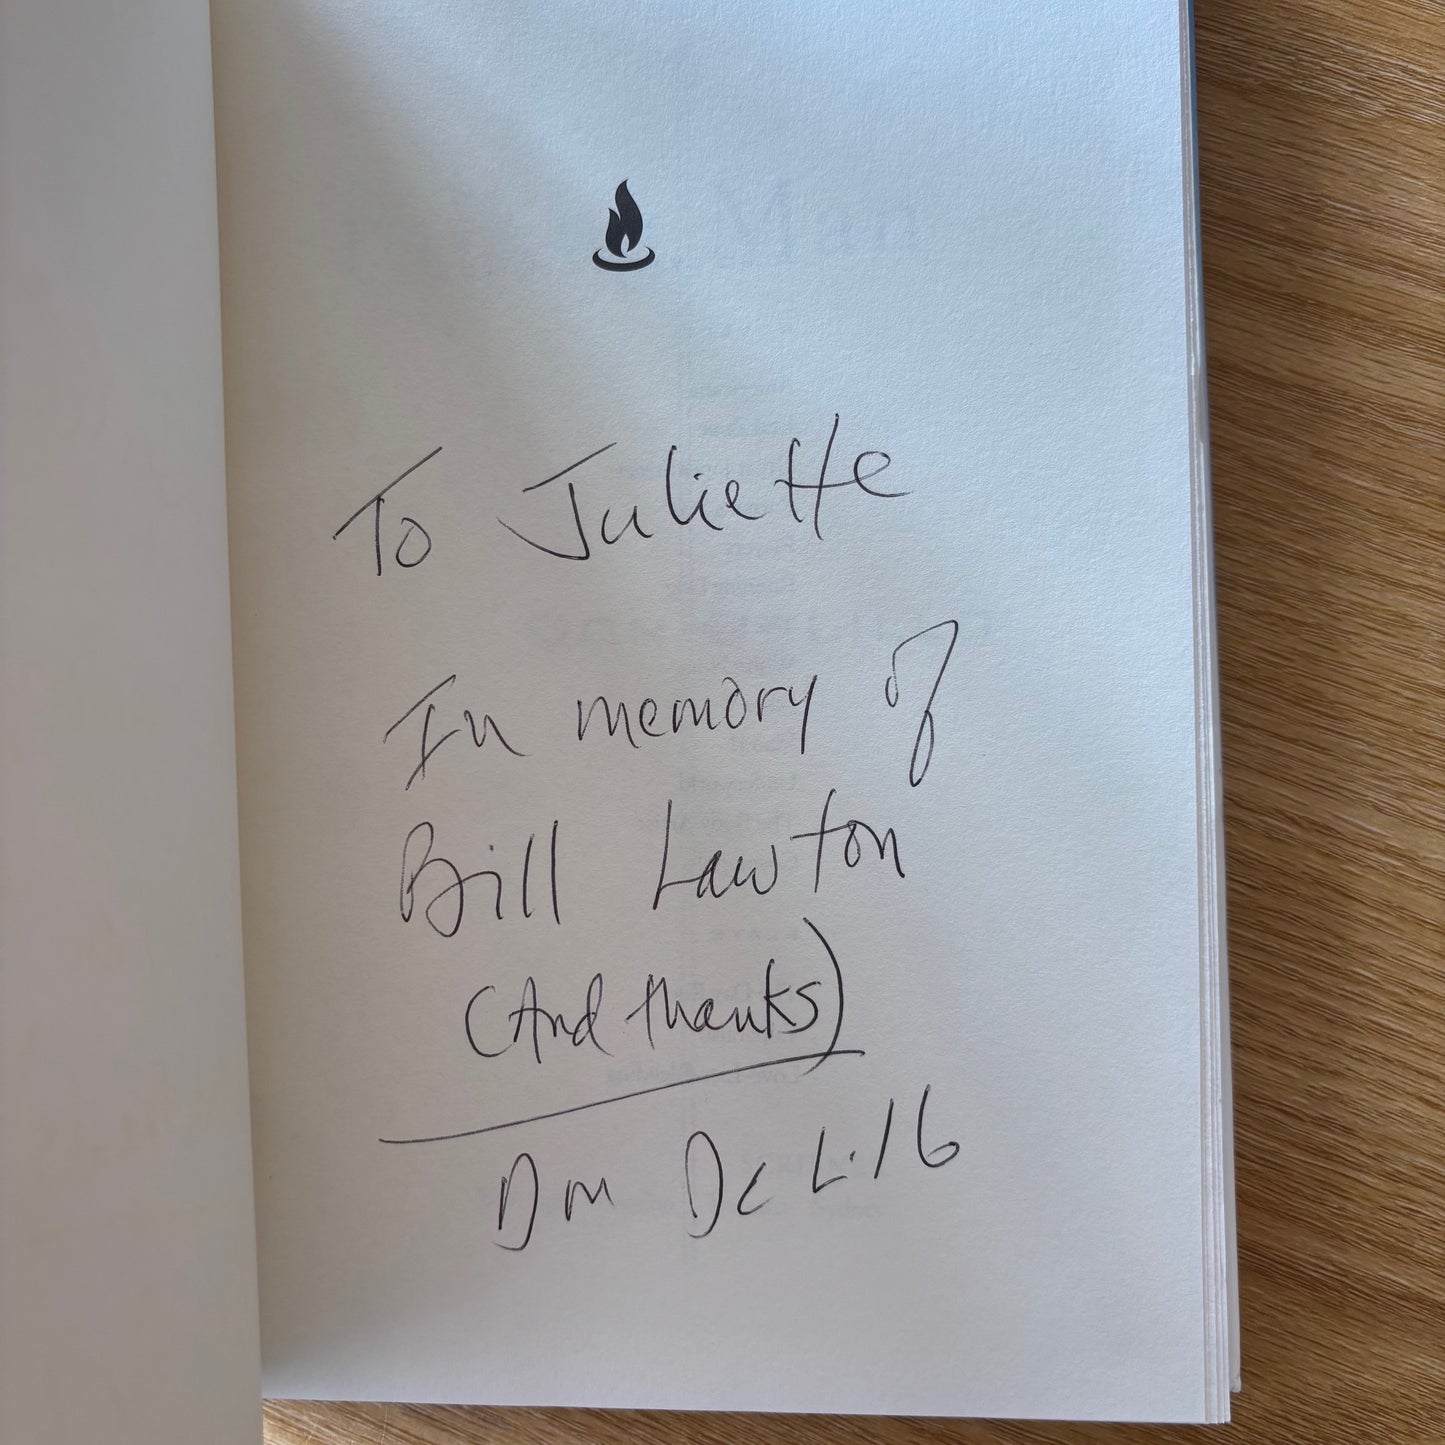 To Juliette
In memory of
Bill Lawton
(And thanks)
Don DeLillo